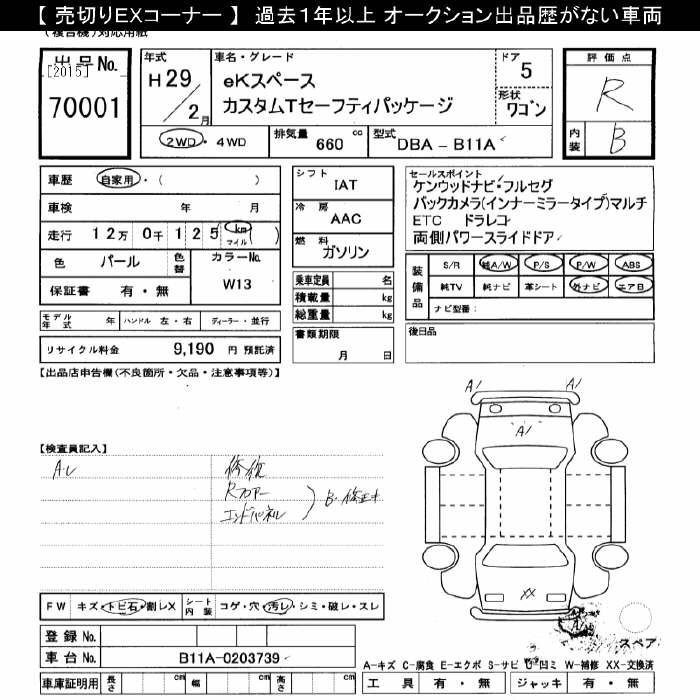 【 売切りEXコーナー 】 過去1年以上 オークション出品歴がない車両
(複合機)対応用紙
出品No.
[2015]
70001
年式
H29/2月
車名・グレード
eKスペース
カスタムTセーフティパッケージ
ドア 5
形状 ワゴン
2WD・4WD
排気量 660 cc
型式 DBA - B11A
評価点
R
内装 B
車歴 自家用・( )
車検 年 月
走行 12万 0千 125 (km マイル)
色 パール 色替
カラーNo. W13
保証書 有・無
シフト IAT
冷房 AAC
燃料 ガソリン
乗車定員 名
積載量 kg
総重量 kg
セールスポイント
ケンウッドナビ・フルセグ
バックカメラ(インナーミラータイプ)マルチ
ETC ドラレコ
両側パワースライドドア
装備品
S/R 純A/W P/S P/W ABS
純TV 純ナビ 革シート 外ナビ エアB
ナビ型番:
モデル年式 年 ハンドル 左・右 ディーラー・並行
リサイクル料金 9,190 円 預託済
書類期限
月 日
後日品
【出品店申告欄(不良箇所・欠品・注意事項等)】
A1 A1
A1
【検査員記入】
修復
Rフロアー
エンドパネル
B・修正キ
XX
FW キズ・トビ石・割レX シート内装 コゲ・穴・汚レ・シミ・破レ・スレ
スペア
登録No.
車台No. B11A-0203739
A-キズ C-腐食 E-エクボ S-サビ U-凹ミ W-補修 XX-交換済
車庫証明用 長さ cm 幅 cm 高さ cm
工具 有・無 ジャッキ 有・無